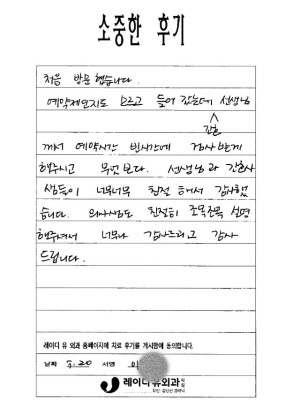 소중한 후기
처음 방문했습니다.
예약제인지도 모르고 들어 갔는데 선생님
간호
께서 예약시간 빈시간에 검사받게
해주시고 무엇보다. 선생님과 간호사
쌤들이 너무너무 친절해서 감사했
습니다. 의사쌤도 친절히 조목조목 설명
해주셔서 너무나 감사드리고 감사
드립니다.
레이디 유 외과 홈페이지에 치료 후기를 게시함에 동의합니다.
날짜 5.20 서명
레이디유외과